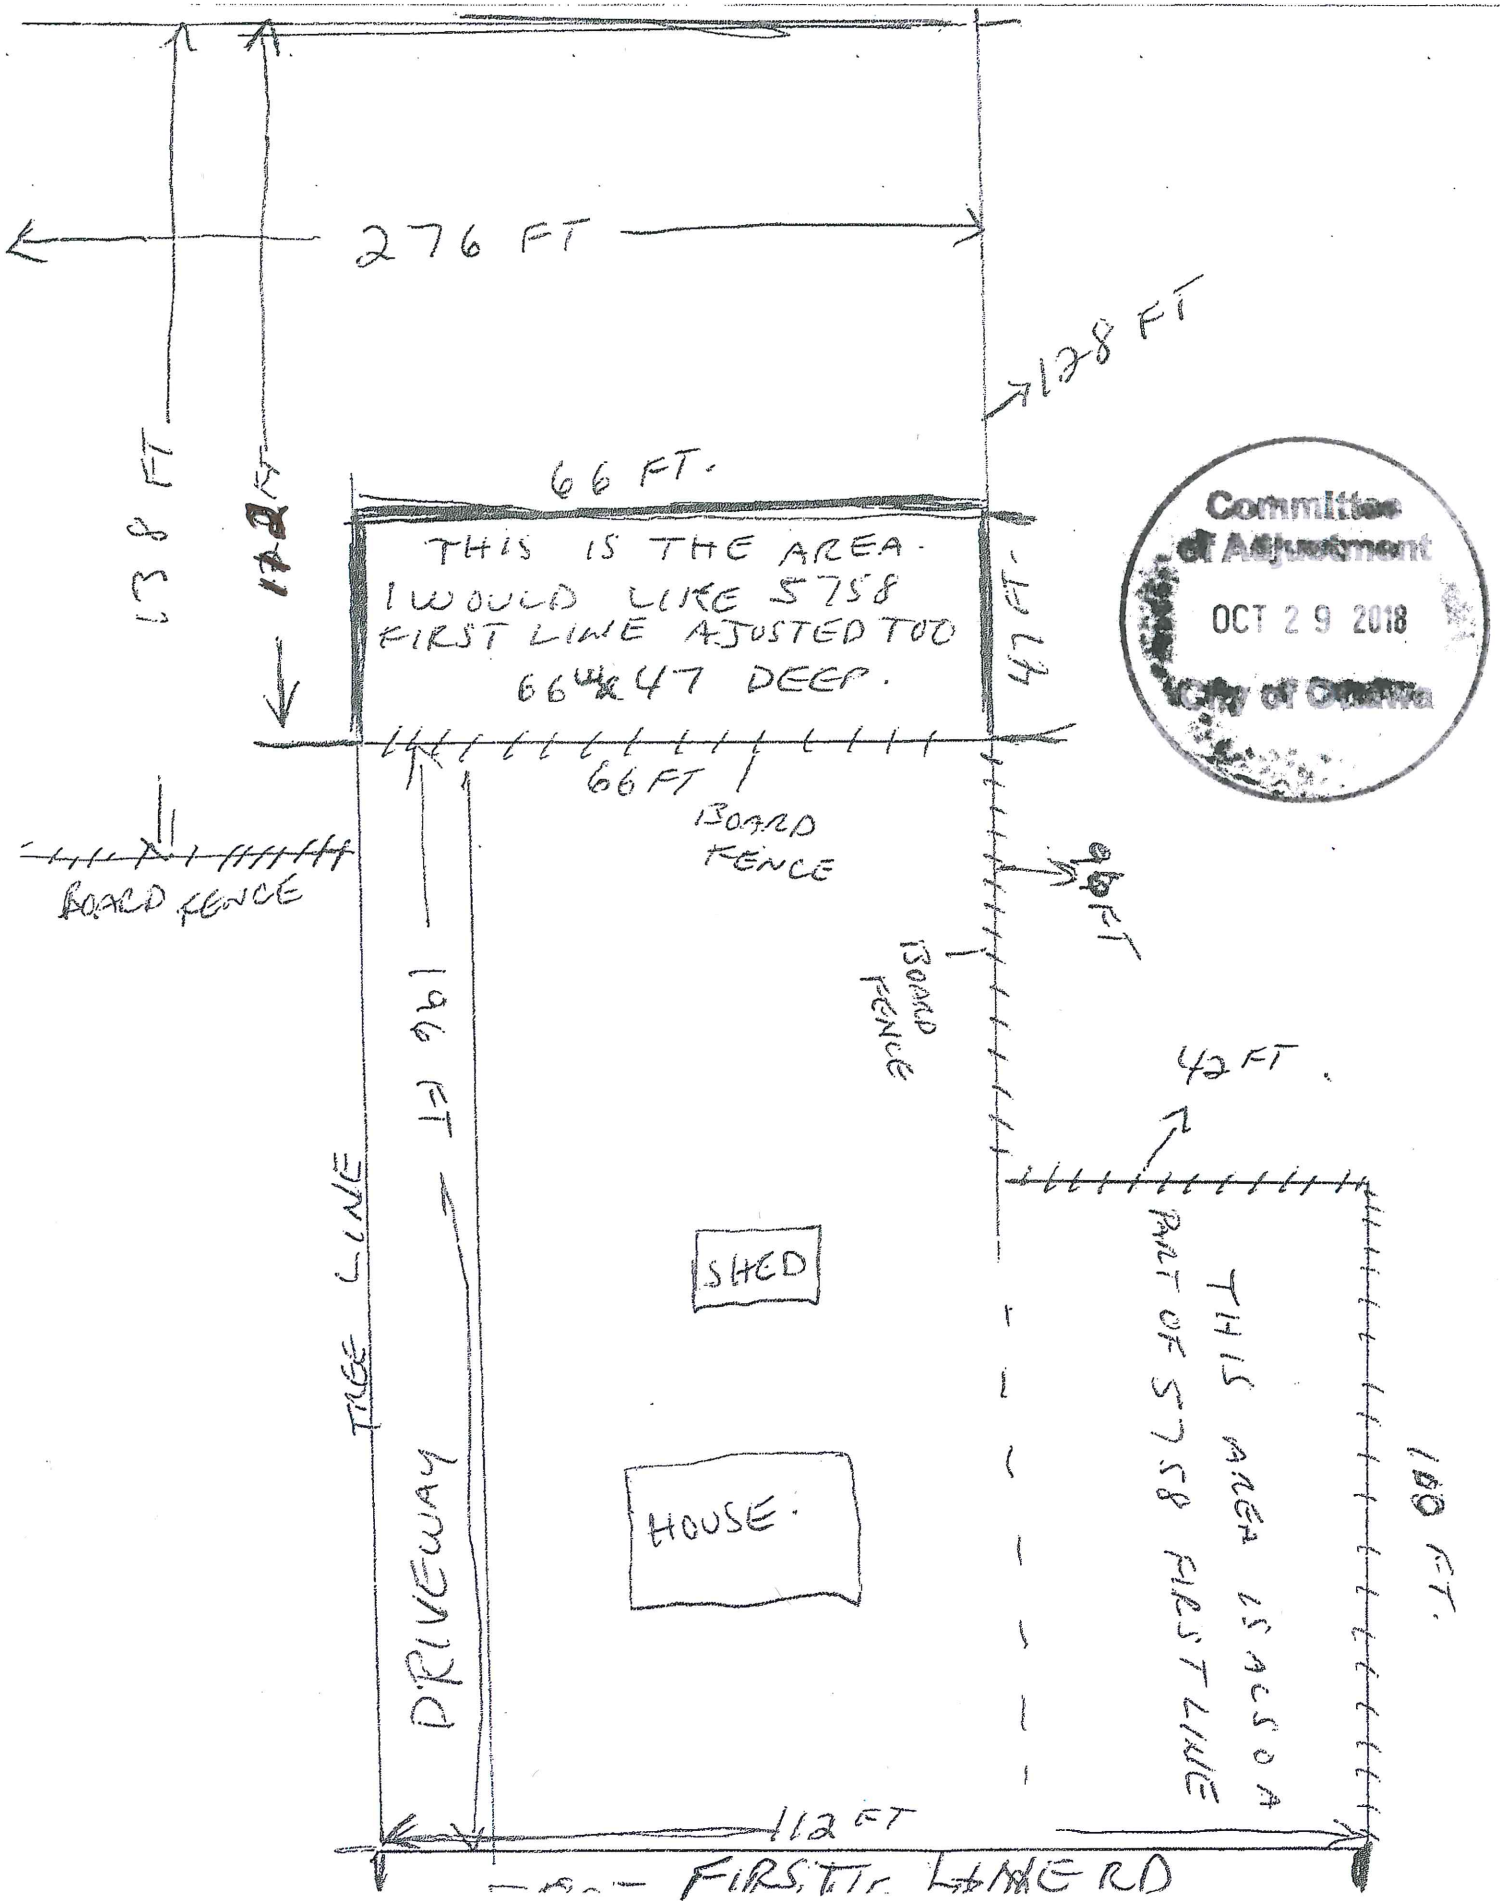 276 FT
138 FT
172 FT
128 FT
66 FT.
THIS IS THE AREA.
I WOULD LIKE 5758
FIRST LINE AJUSTED TOO
66 47 DEEP.
47 FT.
Committee
of Adjustment
OCT 29 2018
City of Ottawa
66 FT
BOARD
FENCE
BOARD FENCE
96 FT
BOARD
FENCE
196 FT
42 FT.
TREE LINE
SHED
THIS AREA IS ALSO A
PART OF 5758 FIRST LINE
100 FT.
HOUSE.
DRIVEWAY
112 FT
FIRST LINE RD